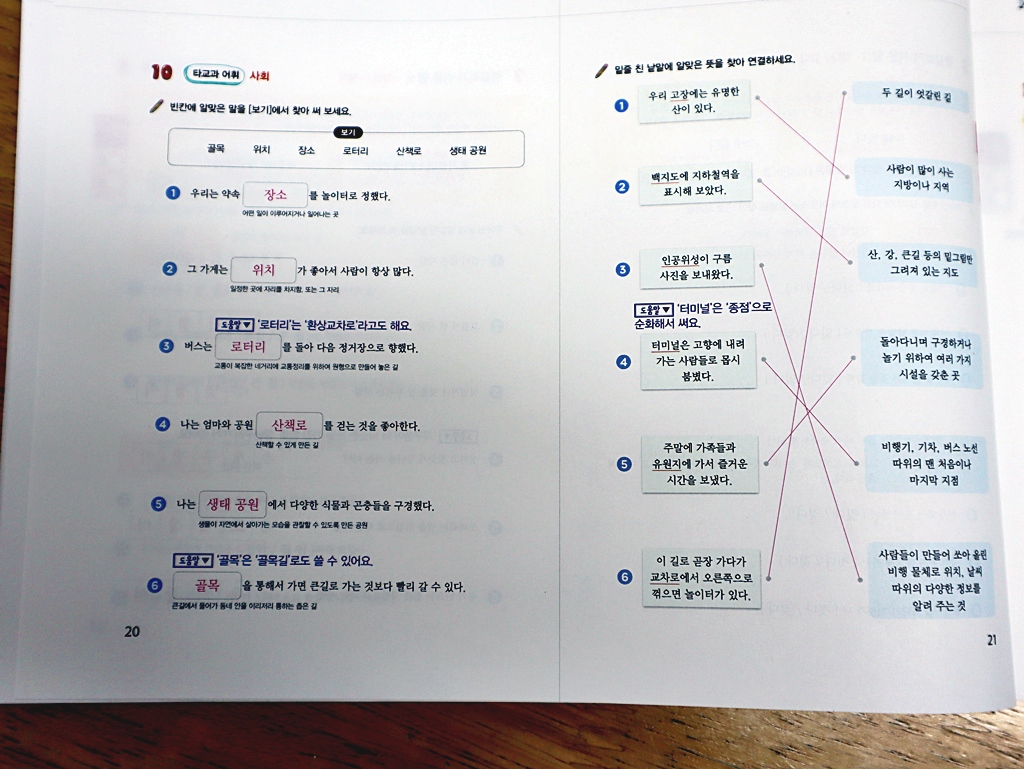 10 타교과 어휘 사회
빈칸에 알맞은 말을 [보기]에서 찾아 써 보세요.
보기
골목 위치 장소 로터리 산책로 생태 공원
1 우리는 약속 장소 를 놀이터로 정했다.
어떤 일이 이루어지거나 일어나는 곳
2 그 가게는 위치 가 좋아서 사람이 항상 많다.
일정한 곳에 자리를 차지함. 또는 그 자리
도움말▼ '로터리'는 '환상교차로'라고도 해요.
3 버스는 로터리 를 돌아 다음 정거장으로 향했다.
교통이 복잡한 네거리에 교통정리를 위하여 원형으로 만들어 놓은 길
4 나는 엄마와 공원 산책로 를 걷는 것을 좋아한다.
산책할 수 있게 만든 길
5 나는 생태 공원 에서 다양한 식물과 곤충들을 구경했다.
생물이 자연에서 살아가는 모습을 관찰할 수 있도록 만든 공원
도움말▼ '골목'은 '골목길'로도 쓸 수 있어요.
6 골목 을 통해서 가면 큰길로 가는 것보다 빨리 갈 수 있다.
큰길에서 들어가 동네 안을 이리저리 통하는 좁은 길
20
밑줄 친 낱말에 알맞은 뜻을 찾아 연결하세요.
1 우리 고장에는 유명한
산이 있다.
두 길이 엇갈린 길
2 백지도에 지하철역을
표시해 보았다.
사람이 많이 사는
지방이나 지역
3 인공위성이 구름
사진을 보내왔다.
산, 강, 큰길 등의 밑그림만
그려져 있는 지도
도움말▼ '터미널'은 '종점'으로
순화해서 써요.
4 터미널은 고향에 내려
가는 사람들로 몹시
붐볐다.
돌아다니며 구경하거나
놀기 위하여 여러 가지
시설을 갖춘 곳
5 주말에 가족들과
유원지에 가서 즐거운
시간을 보냈다.
비행기, 기차, 버스 노선
따위의 맨 처음이나
마지막 지점
6 이 길로 곧장 가다가
교차로에서 오른쪽으로
꺾으면 놀이터가 있다.
사람들이 만들어 쏘아 올린
비행 물체로 위치, 날씨
따위의 다양한 정보를
알려 주는 것
21